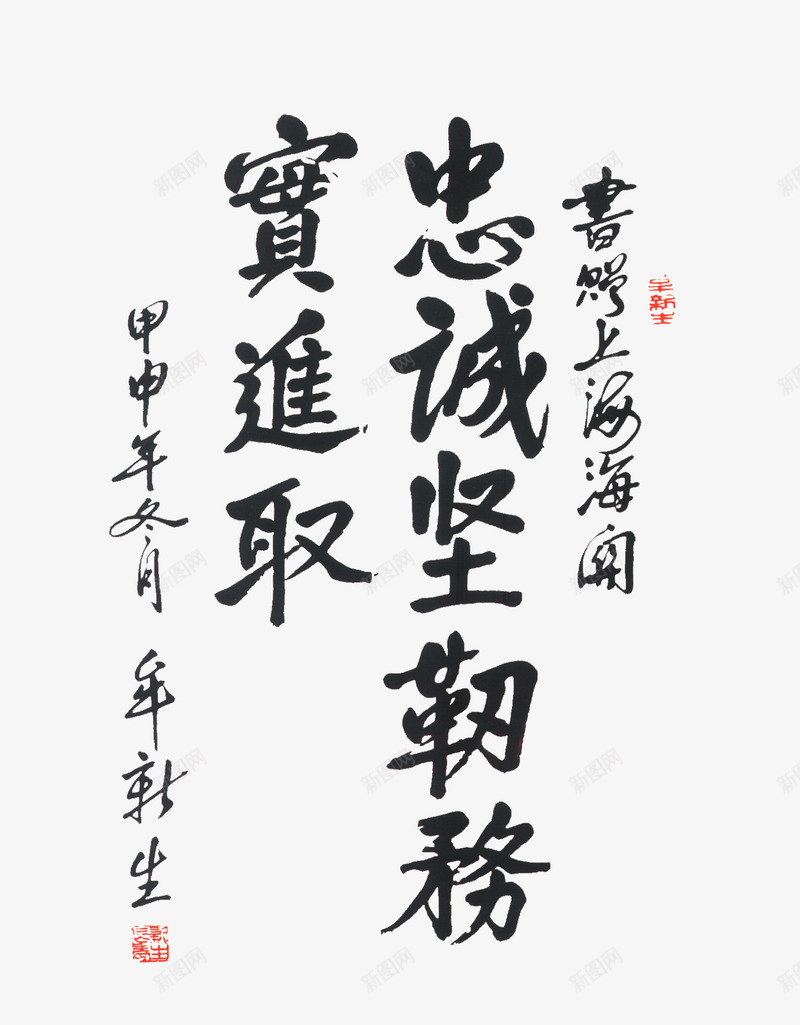 書贈上海海関
牟新生
忠誠坚靭務
實進取
甲申年冬月 牟新生
新图网